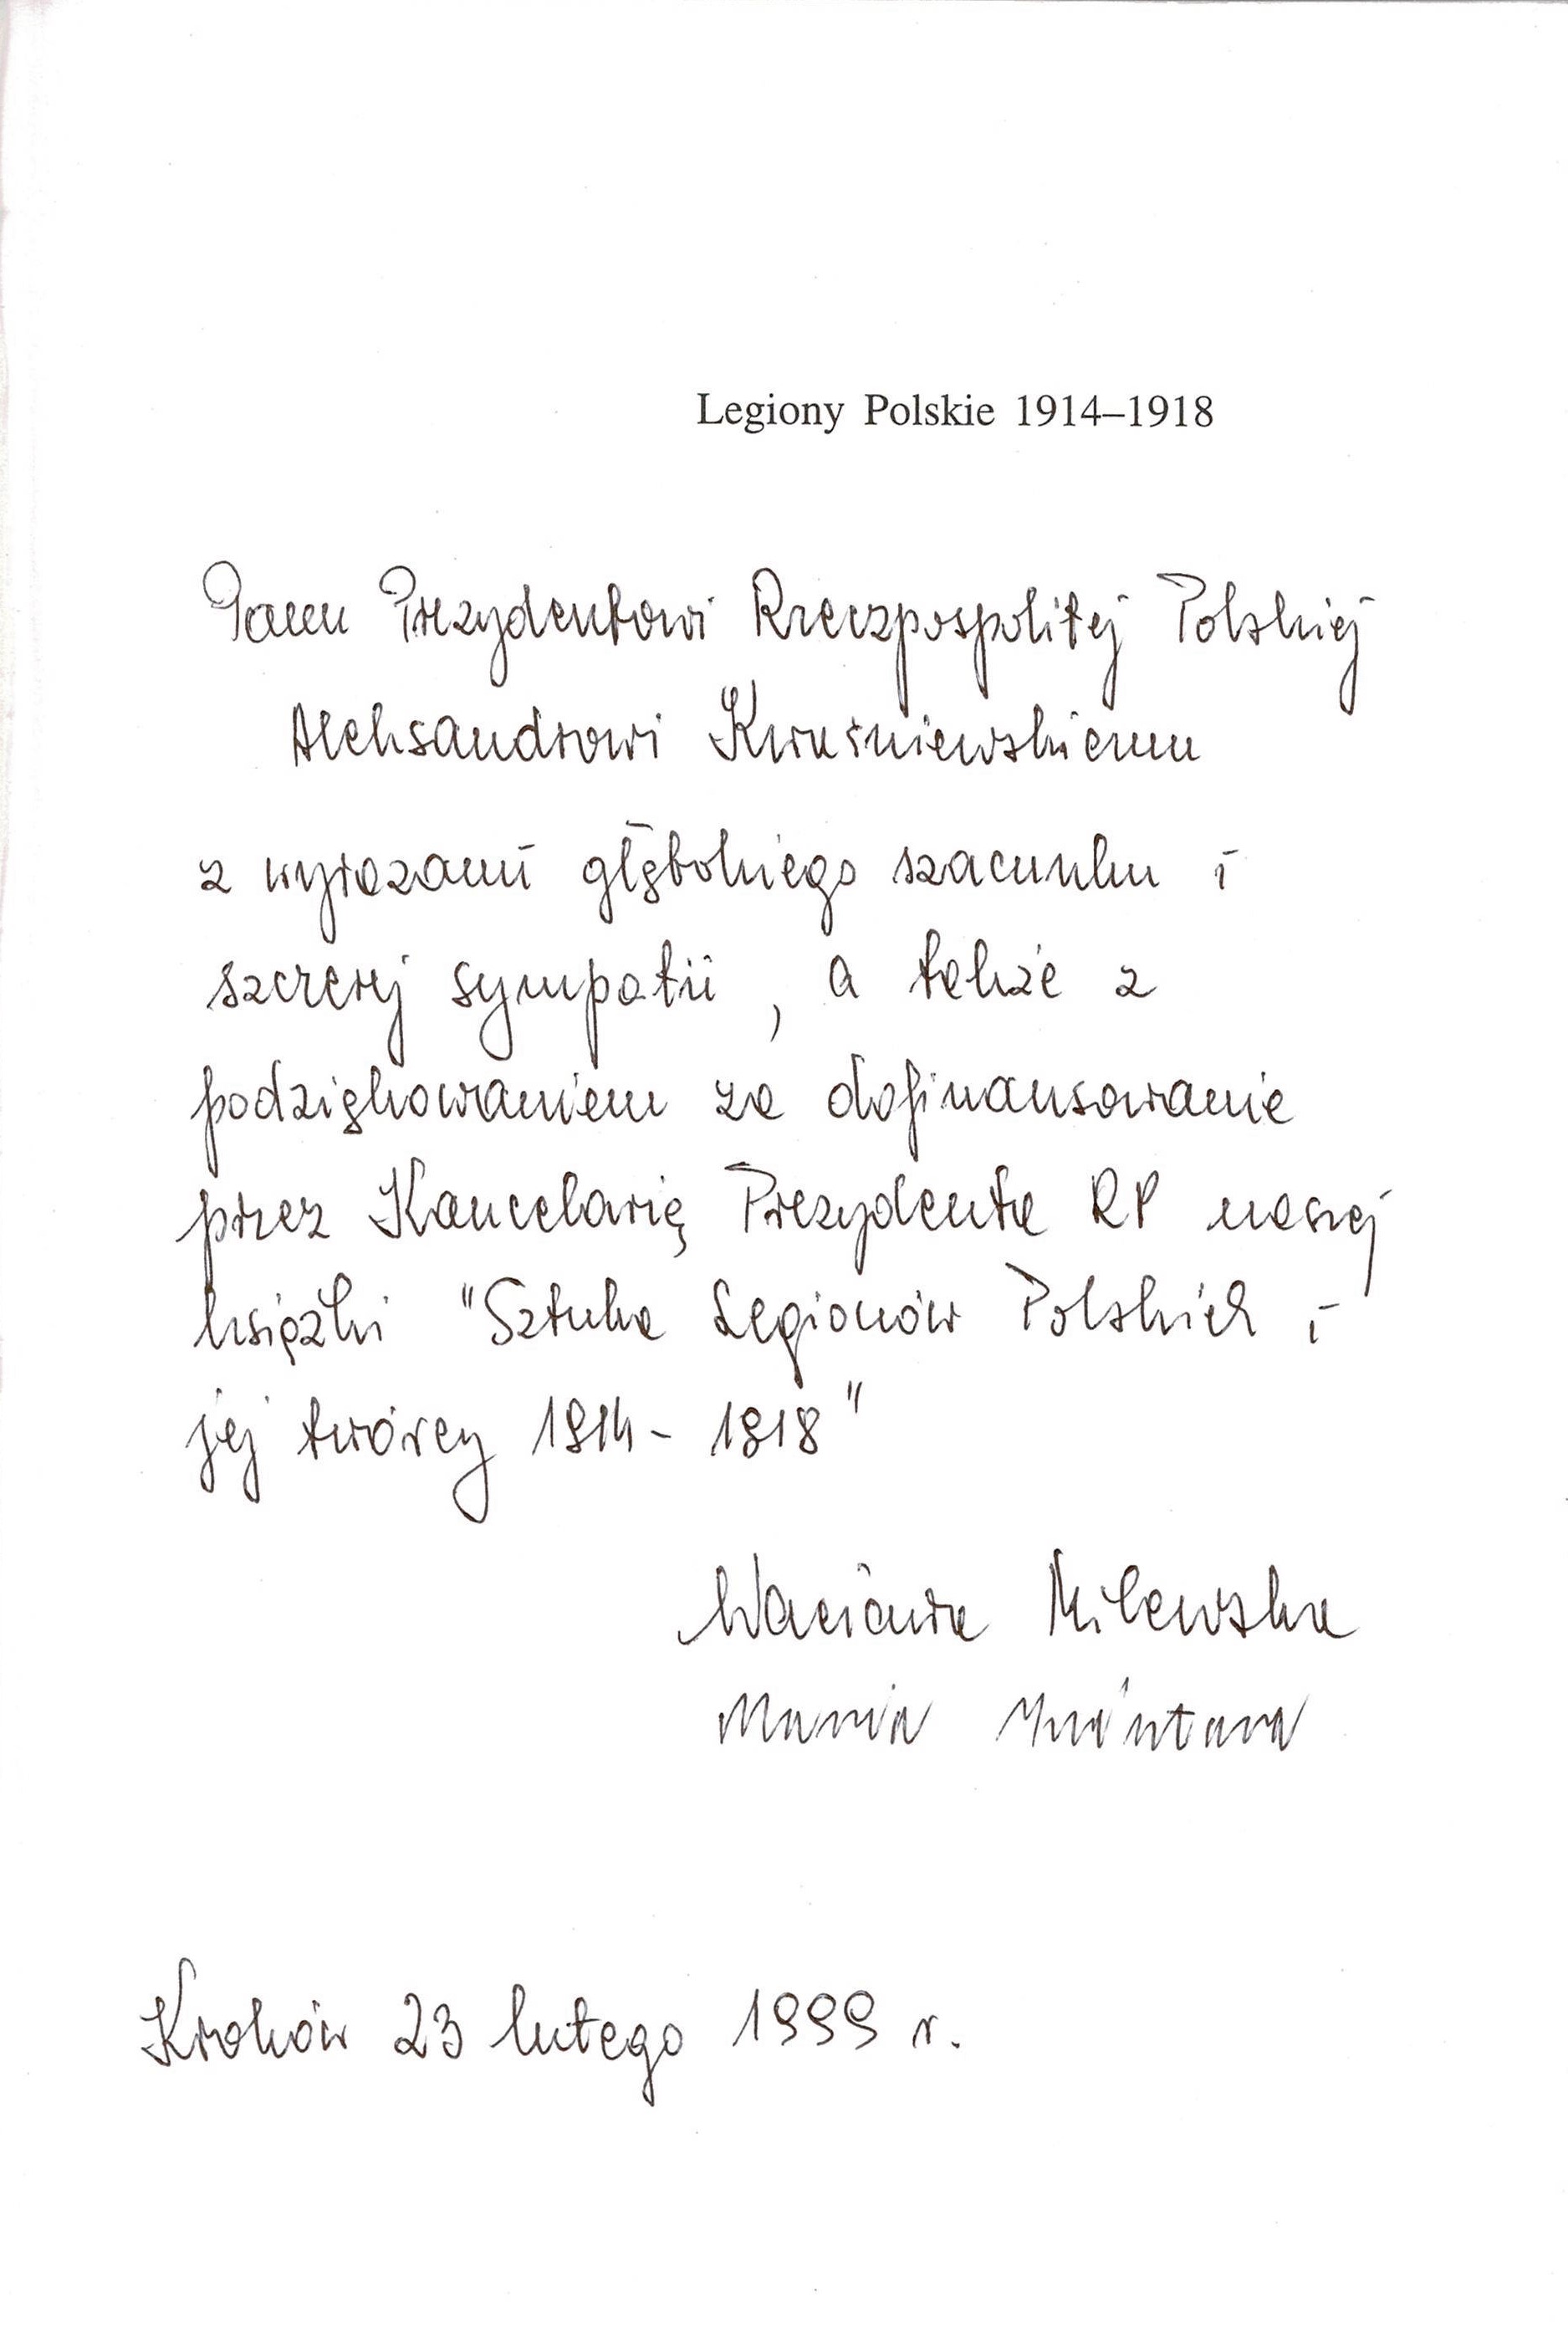 Legiony Polskie 1914–1918
Panu Prezydentowi Rzeczpospolitej Polskiej
Aleksandrowi Kwaśniewskiemu
z wyrazami głębokiego szacunku i
szczerej sympatii, a także z
podziękowaniem za dofinansowanie
przez Kancelarię Prezydenta RP naszej
książki "Sztuka Legionów Polskich i
jej twórcy 1914- 1918"
Wacława Milewska
Maria Zientara
Kraków 23 lutego 1999 r.